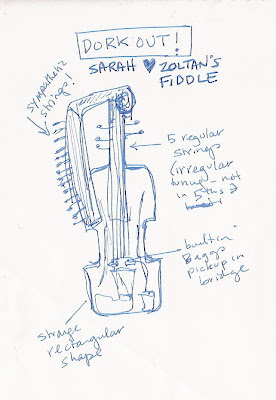 DORK OUT!
SARAH ♥ ZOLTAN'S
FIDDLE
sympathetic
strings!
5 regular
strings
(irregular
tuning - not
in 5ths)
built in
Baggs
pickup in
bridge
strange
rectangular
shape